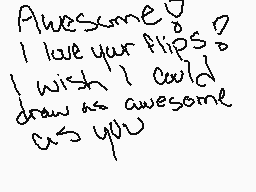 Awesome!
I love your flips!
I wish I could
draw as awesome
as you